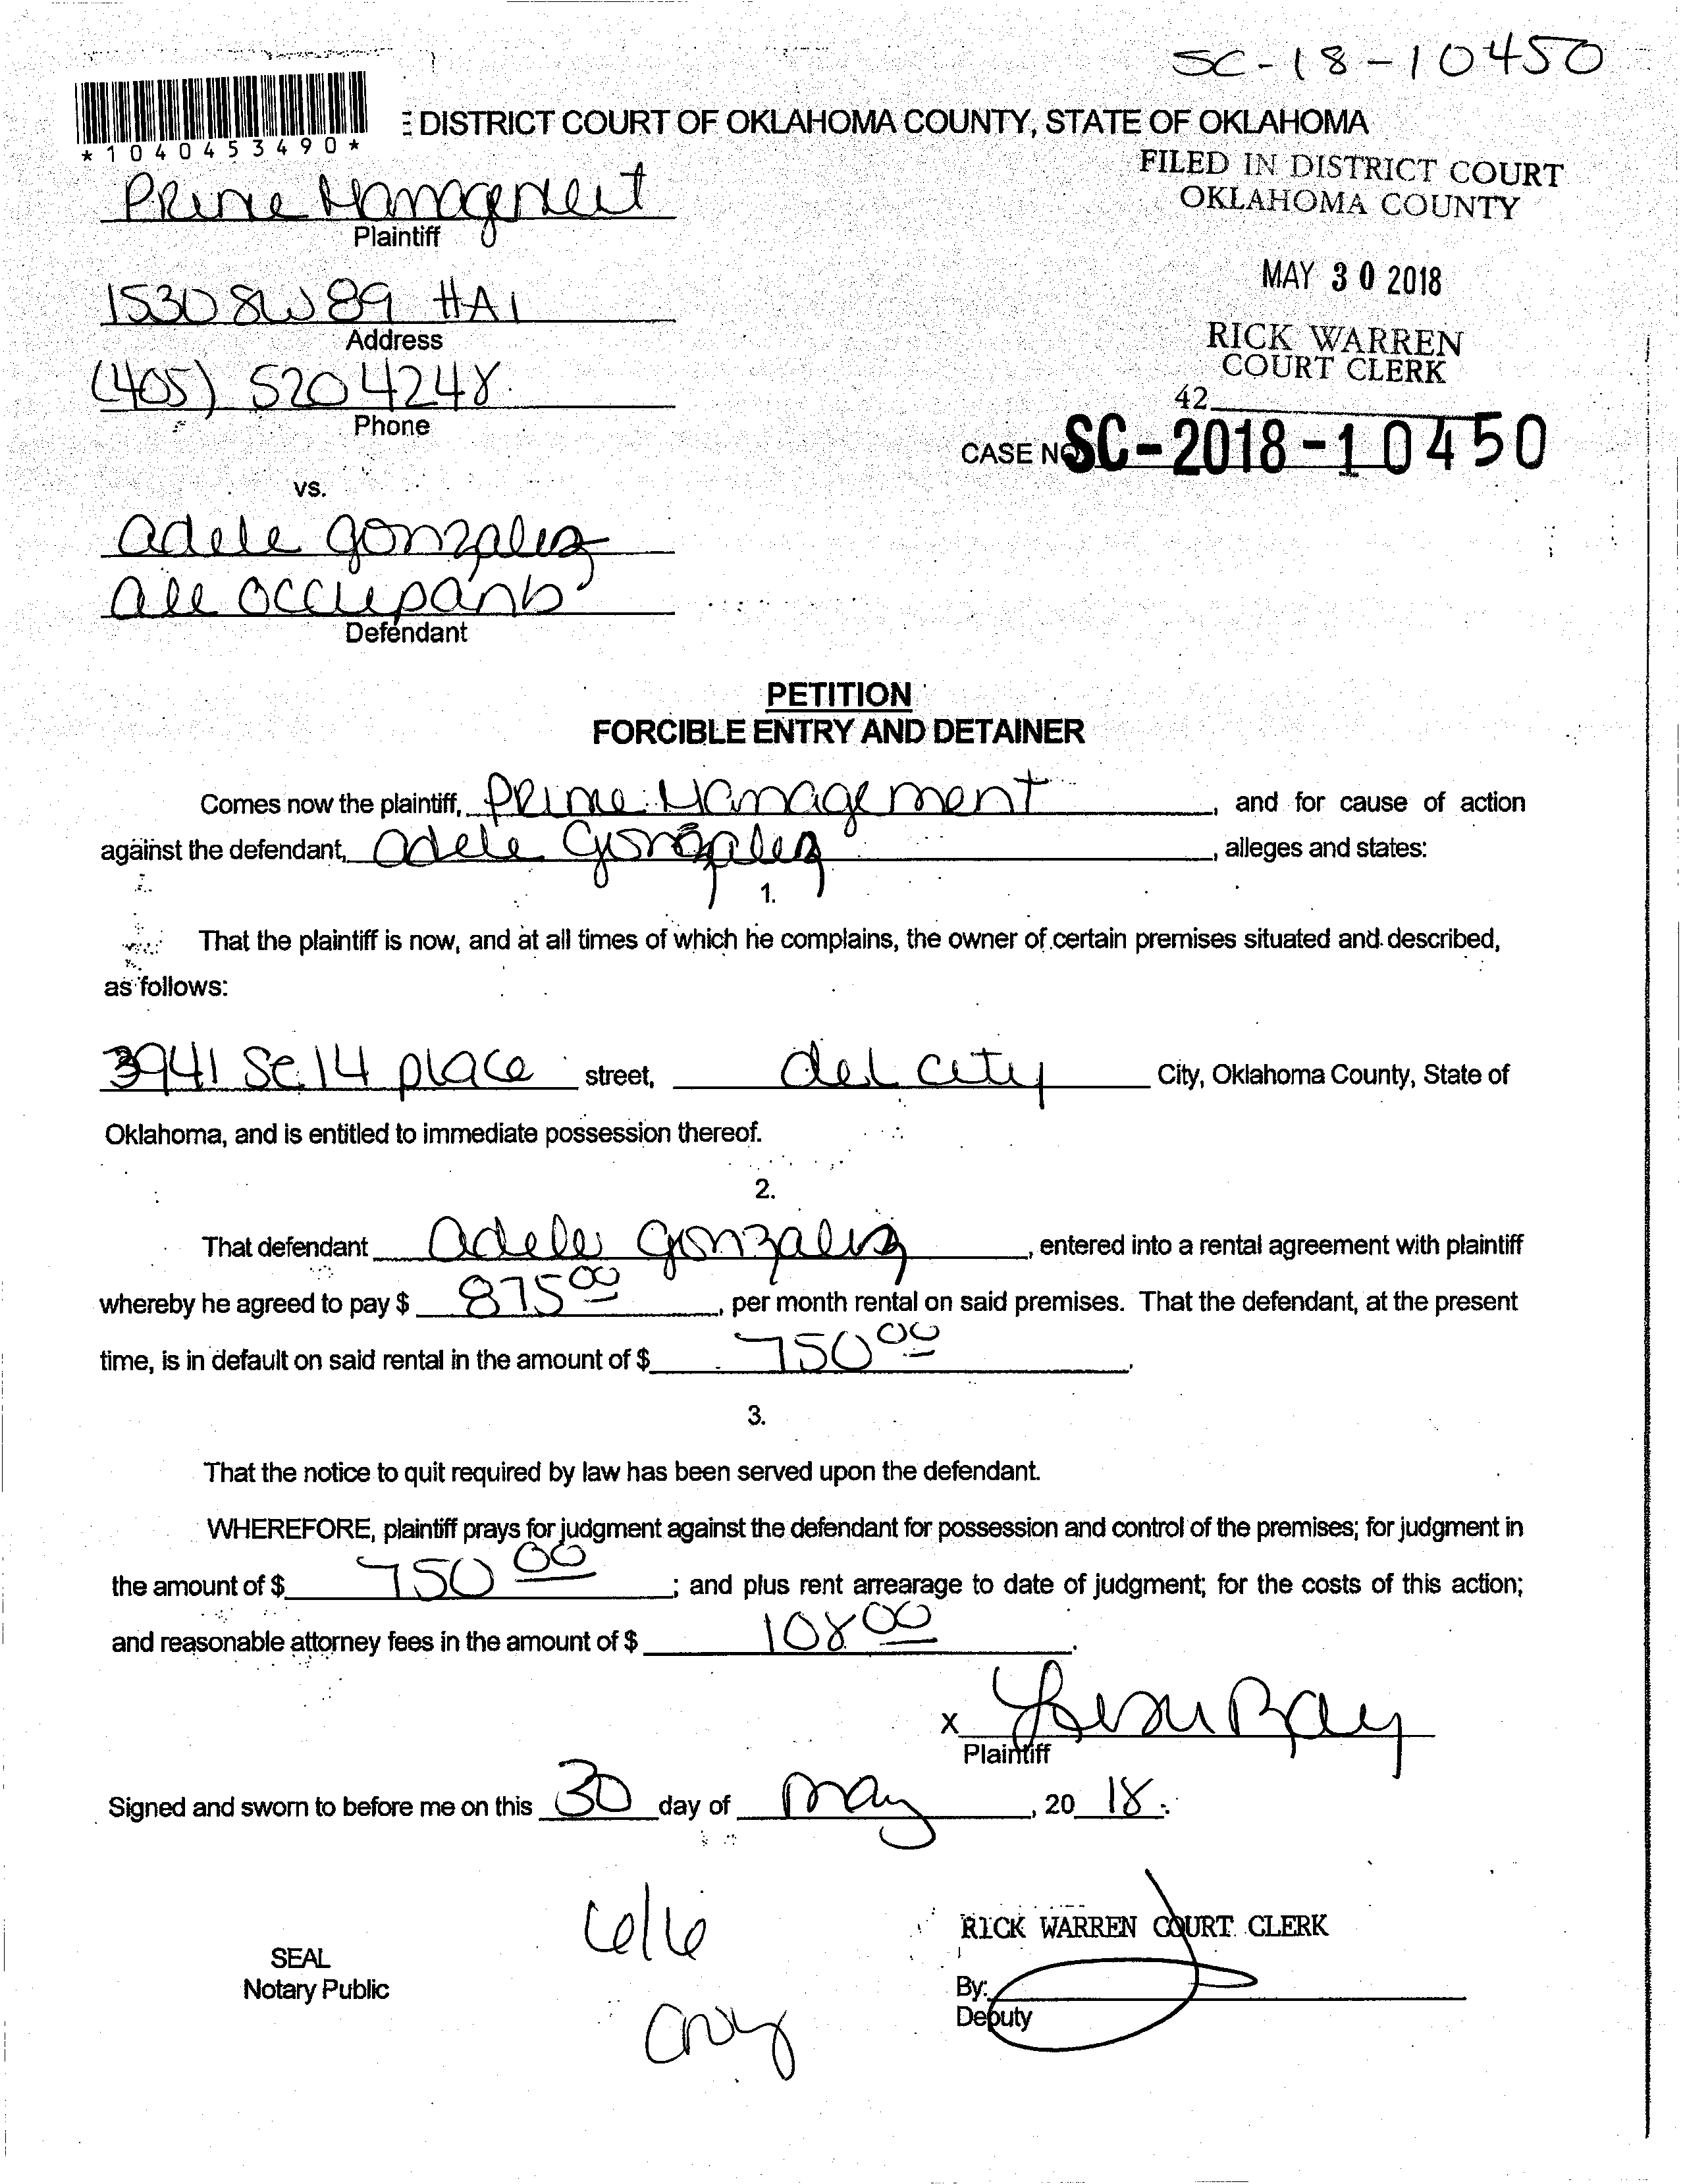 SC-18-10450
*1040453490*
E DISTRICT COURT OF OKLAHOMA COUNTY, STATE OF OKLAHOMA
FILED IN DISTRICT COURT
OKLAHOMA COUNTY
Prime Management
Plaintiff
MAY 30 2018
1530 SW 89 #A1
Address
RICK WARREN
COURT CLERK
(405) 520 4248
Phone
42
CASE NO SC-2018-10450
vs.
adele gonzalez
all occupants
Defendant
PETITION
FORCIBLE ENTRY AND DETAINER
Comes now the plaintiff, Prime Management, and for cause of action
against the defendant, adele Gonzalez, alleges and states:
1.
That the plaintiff is now, and at all times of which he complains, the owner of certain premises situated and described,
as follows:
3941 Se 14 place street, del city City, Oklahoma County, State of
Oklahoma, and is entitled to immediate possession thereof.
2.
That defendant adele gonzalez, entered into a rental agreement with plaintiff
whereby he agreed to pay $ 875 00, per month rental on said premises. That the defendant, at the present
time, is in default on said rental in the amount of $ 750 00.
3.
That the notice to quit required by law has been served upon the defendant.
WHEREFORE, plaintiff prays for judgment against the defendant for possession and control of the premises; for judgment in
the amount of $ 750 00; and plus rent arrearage to date of judgment; for the costs of this action;
and reasonable attorney fees in the amount of $ 108 00.
x
Plaintiff
Signed and sworn to before me on this 30 day of May, 20 18.
6/6
RICK WARREN COURT CLERK
SEAL
Notary Public
By:
Deputy